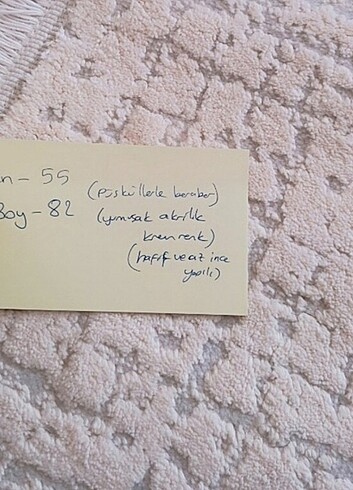 n - 55 (püsküllerle beraber)
Boy - 82 (yumuşak akrilik
krem renk)
(hafif ve az ince
yapılı)